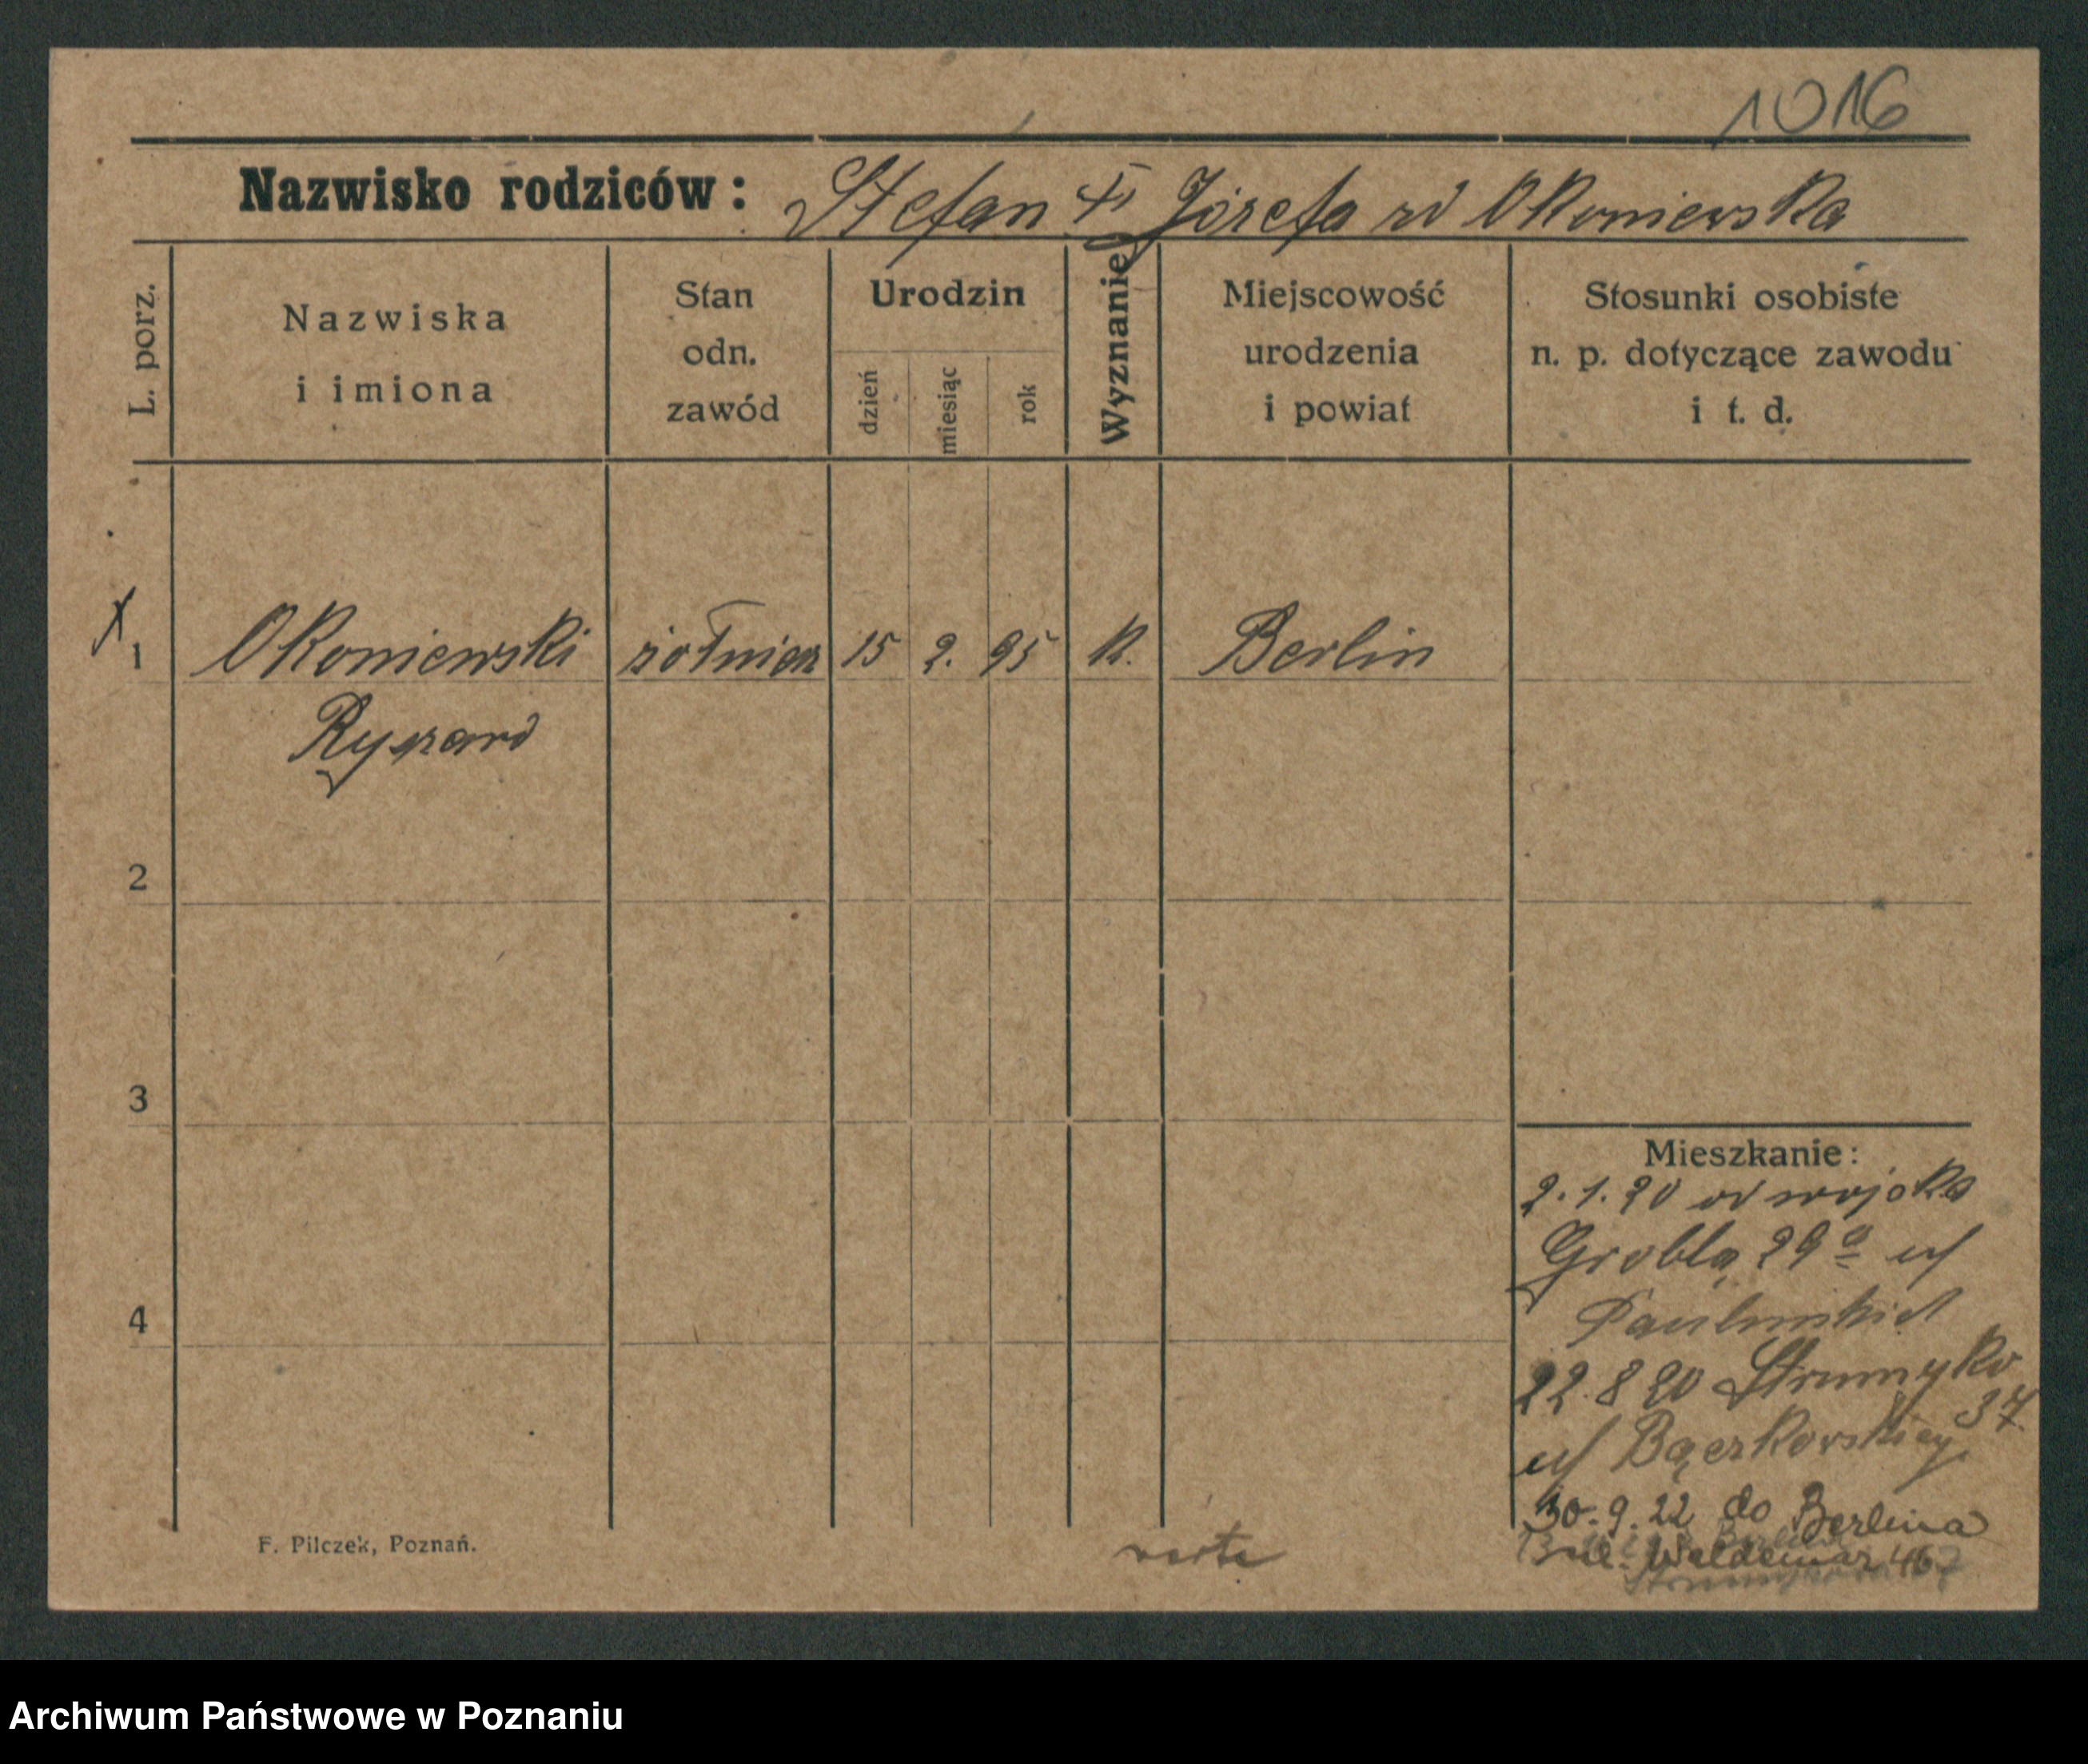 1016
Nazwisko rodziców: Stefan i Józefa rd Okoniewska
L. porz.
Nazwiska
i imiona
Stan
odn.
zawód
Urodzin
dzień
miesiąc
rok
Wyznanie
Miejscowość
urodzenia
i powiat
Stosunki osobiste
n. p. dotyczące zawodu
i t. d.
1 Okoniewski żołnierz 15 2. 95 k. Berlin
Ryszard
2
3
4
Mieszkanie:
2.1.20 od wojska
Grobla 29a u/
22.8 20 Strumyko
37.
u/ Bączkowskiey
30.9.22 do Berlina
Waldemar 46
F. Pilczek, Poznań.
verte
Archiwum Państwowe w Poznaniu